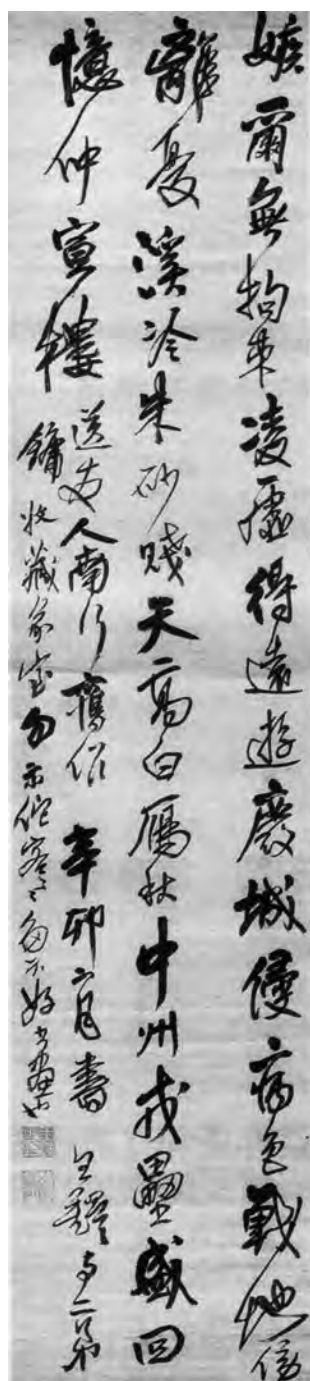 嫉爾無拘束凌虛得遠遊廢城侵病色戰地傍
離憂溪冷朱砂賤天高白雁秋中州戎壘盛回
憶仲宣樓 送友人南行舊作 辛卯六月書 王鐸 與二弟
鏞收藏家室勿示他客客多不好書畫也